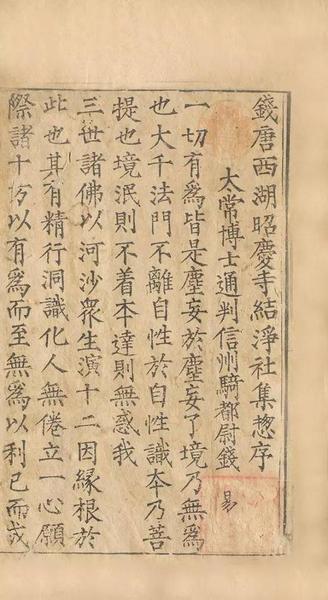 錢唐西湖昭慶寺結淨社集惣序
太常博士通判信州騎都尉錢易
一切有為皆是塵妄於塵妄了境乃無為
也大千法門不離自性於自性識本乃菩
提也境泯則不着本達則無惑我
三世諸佛以河沙衆生演十二因緣根於
此也其有精行洞識化人無倦立一心願
際諸十方以有為而至無為以利已而成